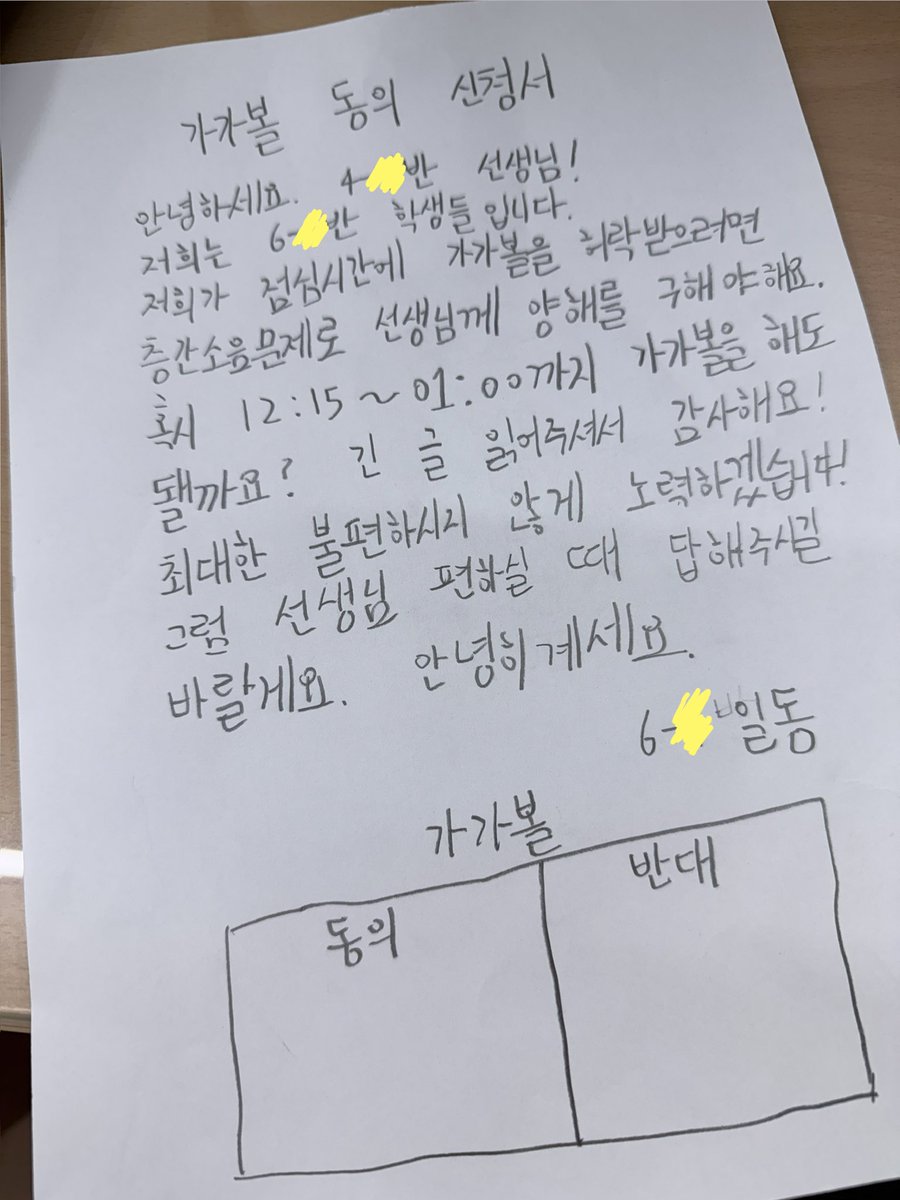 가가볼 동의 신청서
안녕하세요. 4-반 선생님!
저희는 6-반 학생들입니다.
저희가 점심시간에 가가볼을 허락받으려면
층간소음문제로 선생님께 양해를 구해야해요.
혹시 12:15~01:00까지 가가볼을 해도
될까요? 긴 글 읽어주셔서 감사해요!
최대한 불편하시지 않게 노력하겠습니다!
그럼 선생님 편하실 때 답해주시길
바랄게요. 안녕히계세요.
6- 일동
가가볼
동의 반대